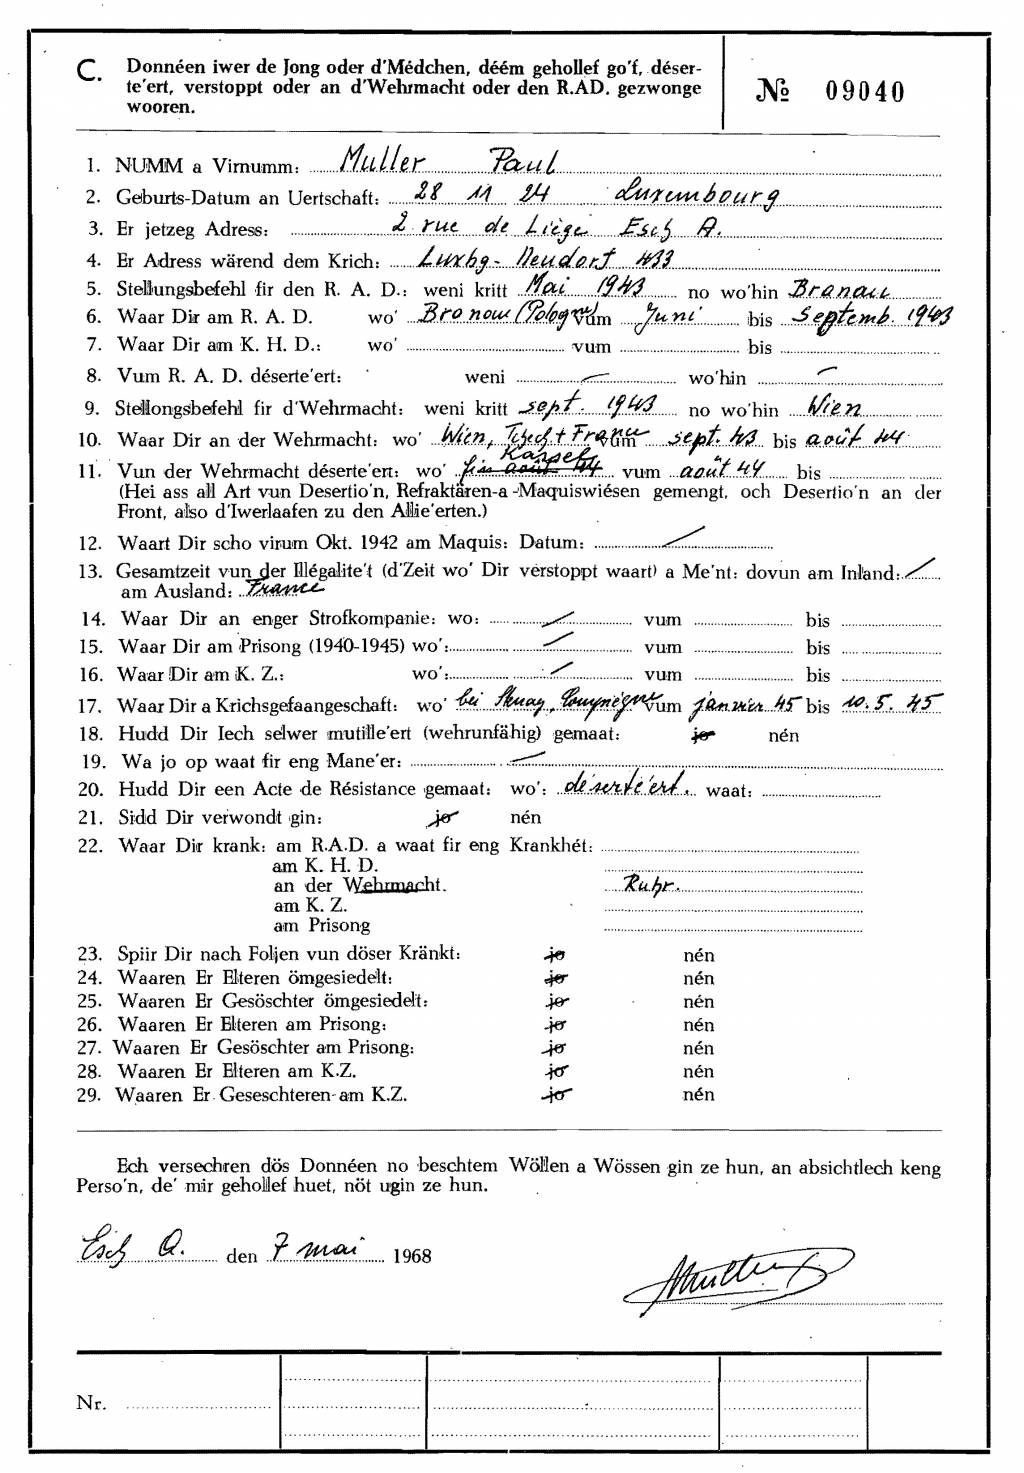 C. Donnéen iwer de Jong oder d'Médchen, déém gehollef go'f, déser-
te'ert, verstoppt oder an d'Wehrmacht oder den R.AD. gezwonge
wooren.
№ 09040
1. NUMM a Virnumm: Muller Paul
2. Geburts-Datum an Uertschaft: 28 11 24 Luxembourg
3. Er jetzeg Adress: 2 rue de Liège Esch A.
4. Er Adress wärend dem Krich: Luxbg-Neudorf 433
5. Stellungsbefehl fir den R. A. D.: weni kritt Mai 1943 no wo'hin Branau
6. Waar Dir am R. A. D. wo' Branow (Pologne) vum Juni bis Septemb. 1943
7. Waar Dir am K. H. D.: wo' vum bis
8. Vum R. A. D. déserte'ert: weni — wo'hin —
9. Stellongsbefehl fir d'Wehrmacht: weni kritt sept. 1943 no wo'hin Wien
10. Waar Dir an der Wehrmacht: wo' Wien, Tschech + France vum sept. 43 bis août 44
11. Vun der Wehrmacht déserte'ert: wo' Kassel fin août 44 vum août 44 bis
(Hei ass all Art vun Desertio'n, Refraktären-a-Maquiswiésen gemengt, och Desertio'n an der
Front, also d'Iwerlaafen zu den Allie'erten.)
12. Waart Dir scho virum Okt. 1942 am Maquis: Datum: /
13. Gesamtzeit vun der Illégalite't (d'Zeit wo' Dir verstoppt waart) a Me'nt: dovun am Inland: /
am Ausland: France
14. Waar Dir an enger Strofkompanie: wo: / vum bis
15. Waar Dir am Prisong (1940-1945) wo': / vum bis
16. Waar Dir am K. Z.: wo': / vum bis
17. Waar Dir a Krichsgefaangeschaft: wo' bei Stenay, Compiègne vum janvier 45 bis 10. 5. 45
18. Hudd Dir Iech selwer mutille'ert (wehrunfähig) gemaat: jo nén
19. Wa jo op waat fir eng Mane'er: —
20. Hudd Dir een Acte de Résistance gemaat: wo': déserté'ert. waat:
21. Sidd Dir verwondt gin: jo nén
22. Waar Dir krank: am R.A.D. a waat fir eng Krankhét:
am K. H. D.
an der Wehrmacht. Ruhr.
am K. Z.
am Prisong
23. Spiir Dir nach Foljen vun döser Kränkt: jo nén
24. Waaren Er Elteren ömgesiedelt: jo nén
25. Waaren Er Gesöschter ömgesiedelt: jo nén
26. Waaren Er Elteren am Prisong: jo nén
27. Waaren Er Gesöschter am Prisong: jo nén
28. Waaren Er Elteren am K.Z. jo nén
29. Waaren Er Geseschteren am K.Z. jo nén
Ech versechren dös Donnéen no beschtem Wöllen a Wössen gin ze hun, an absichtlech keng
Perso'n, de' mir gehollef huet, nöt ugin ze hun.
Esch A. den 7 mai 1968
Muller
Nr.